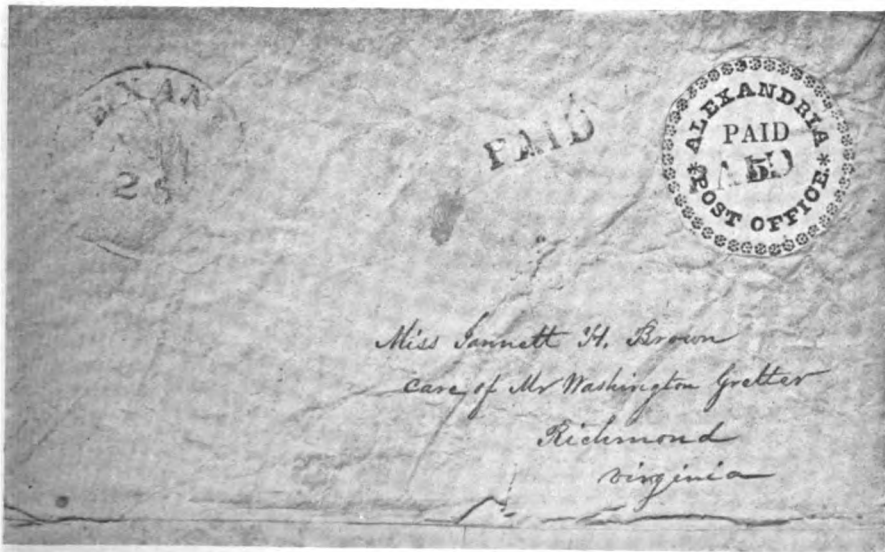 PAID
ALEXANDRIA
PAID
PAID
5
* POST OFFICE *
Miss Jannett H. Brown
care of Mr Washington Gretter
Richmond
virginia